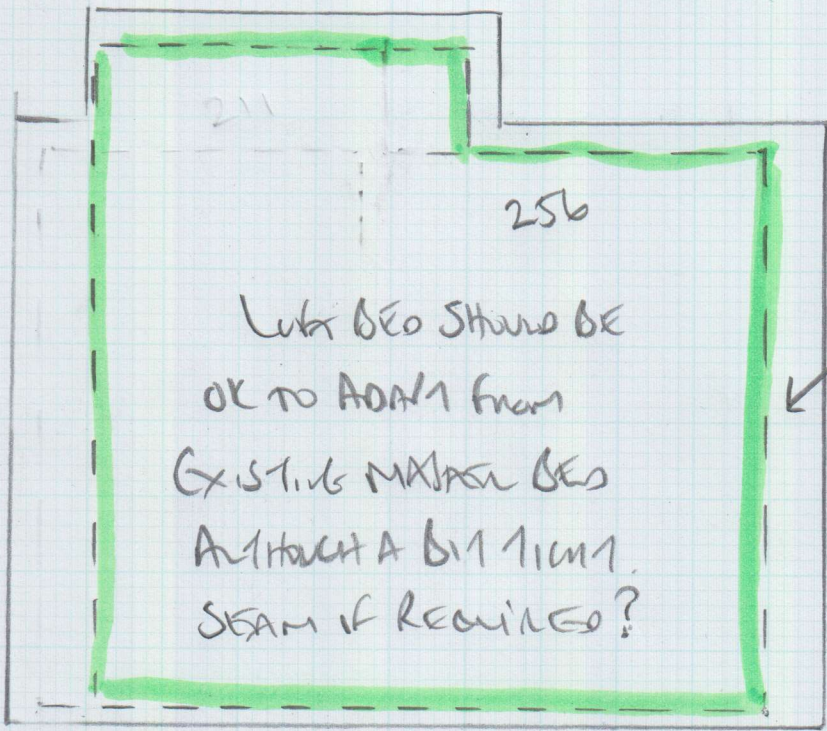 211
256
BED SHOULD BE
OK TO ADAPT FROM
EXISTING MASTER BED
ALTHOUGH A BIT TIGHT.
SEAM IF REQUIRED?